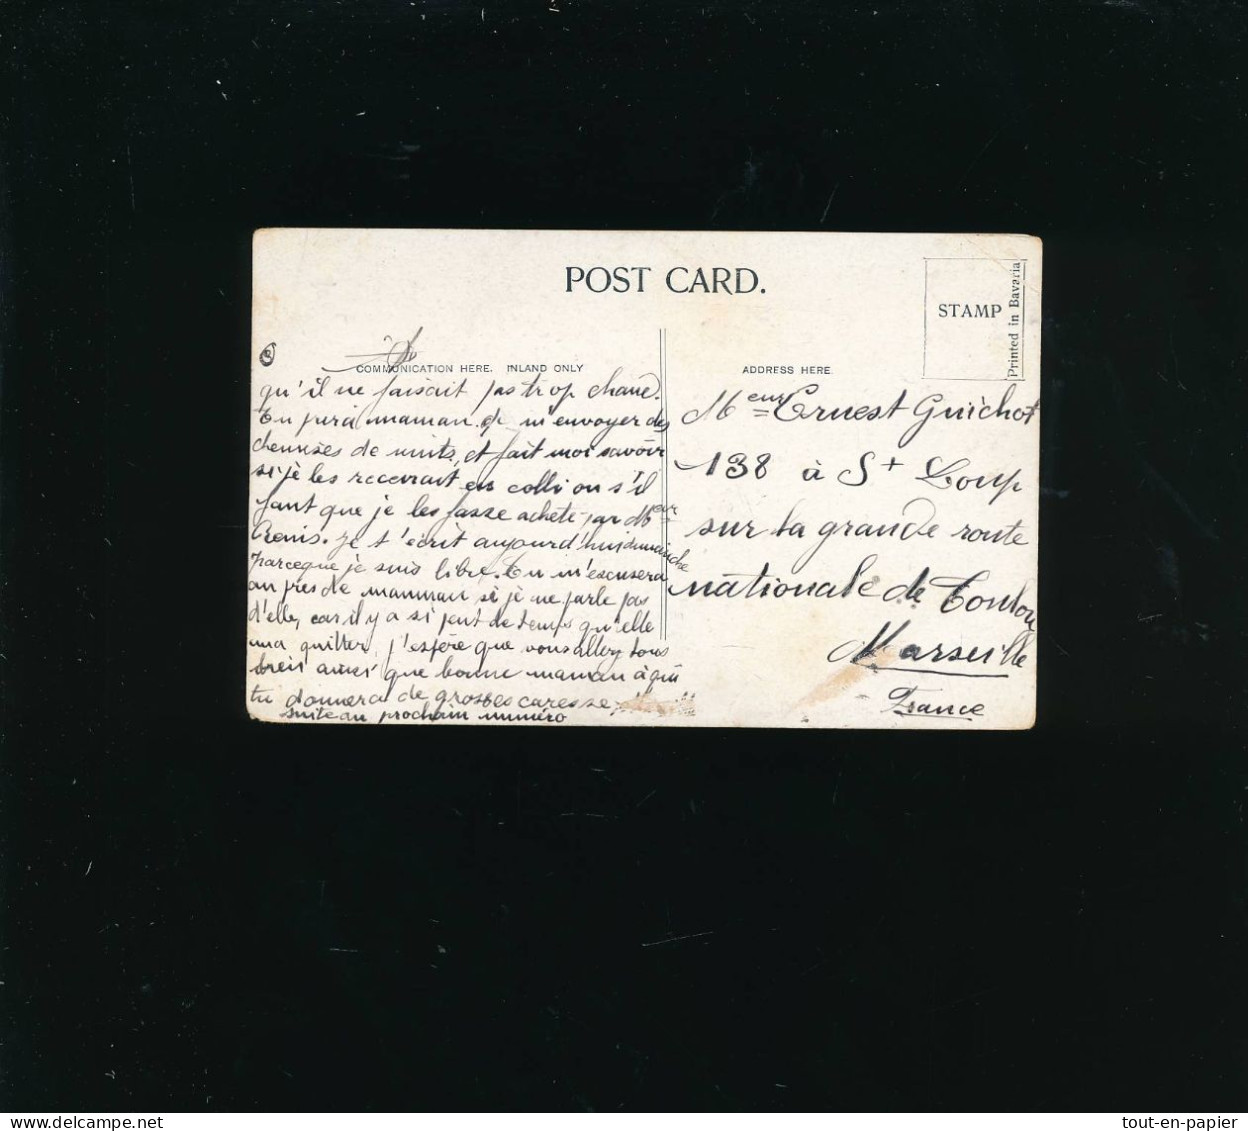 POST CARD.
STAMP
Printed in Bavaria
COMMUNICATION HERE. INLAND ONLY
ADDRESS HERE.
qu'il ne faisait pas trop chaud.
Tu maman m'envoyer des
chemises de nuits, et fait moi savoir
si je les recevrait en colli ou s'il
faut que je les fasse acheté par Meur
je t'écrit aujourd'hui dimanche
parceque je suis libre. Tu m'escusera
au près de mamman si je ne parle pas
d'elle, car il y a si peut de temps qu'elle
ma quitter, j'espère que vous allez tous
bien aussi que bonne maman à qui
tu donnera de grosses caresse
suite au prochain numéro
Meur Ernest Guichot
138 à St Loup
sur la grande route
nationale de Toulon
Marseille
France
tout-en-papier